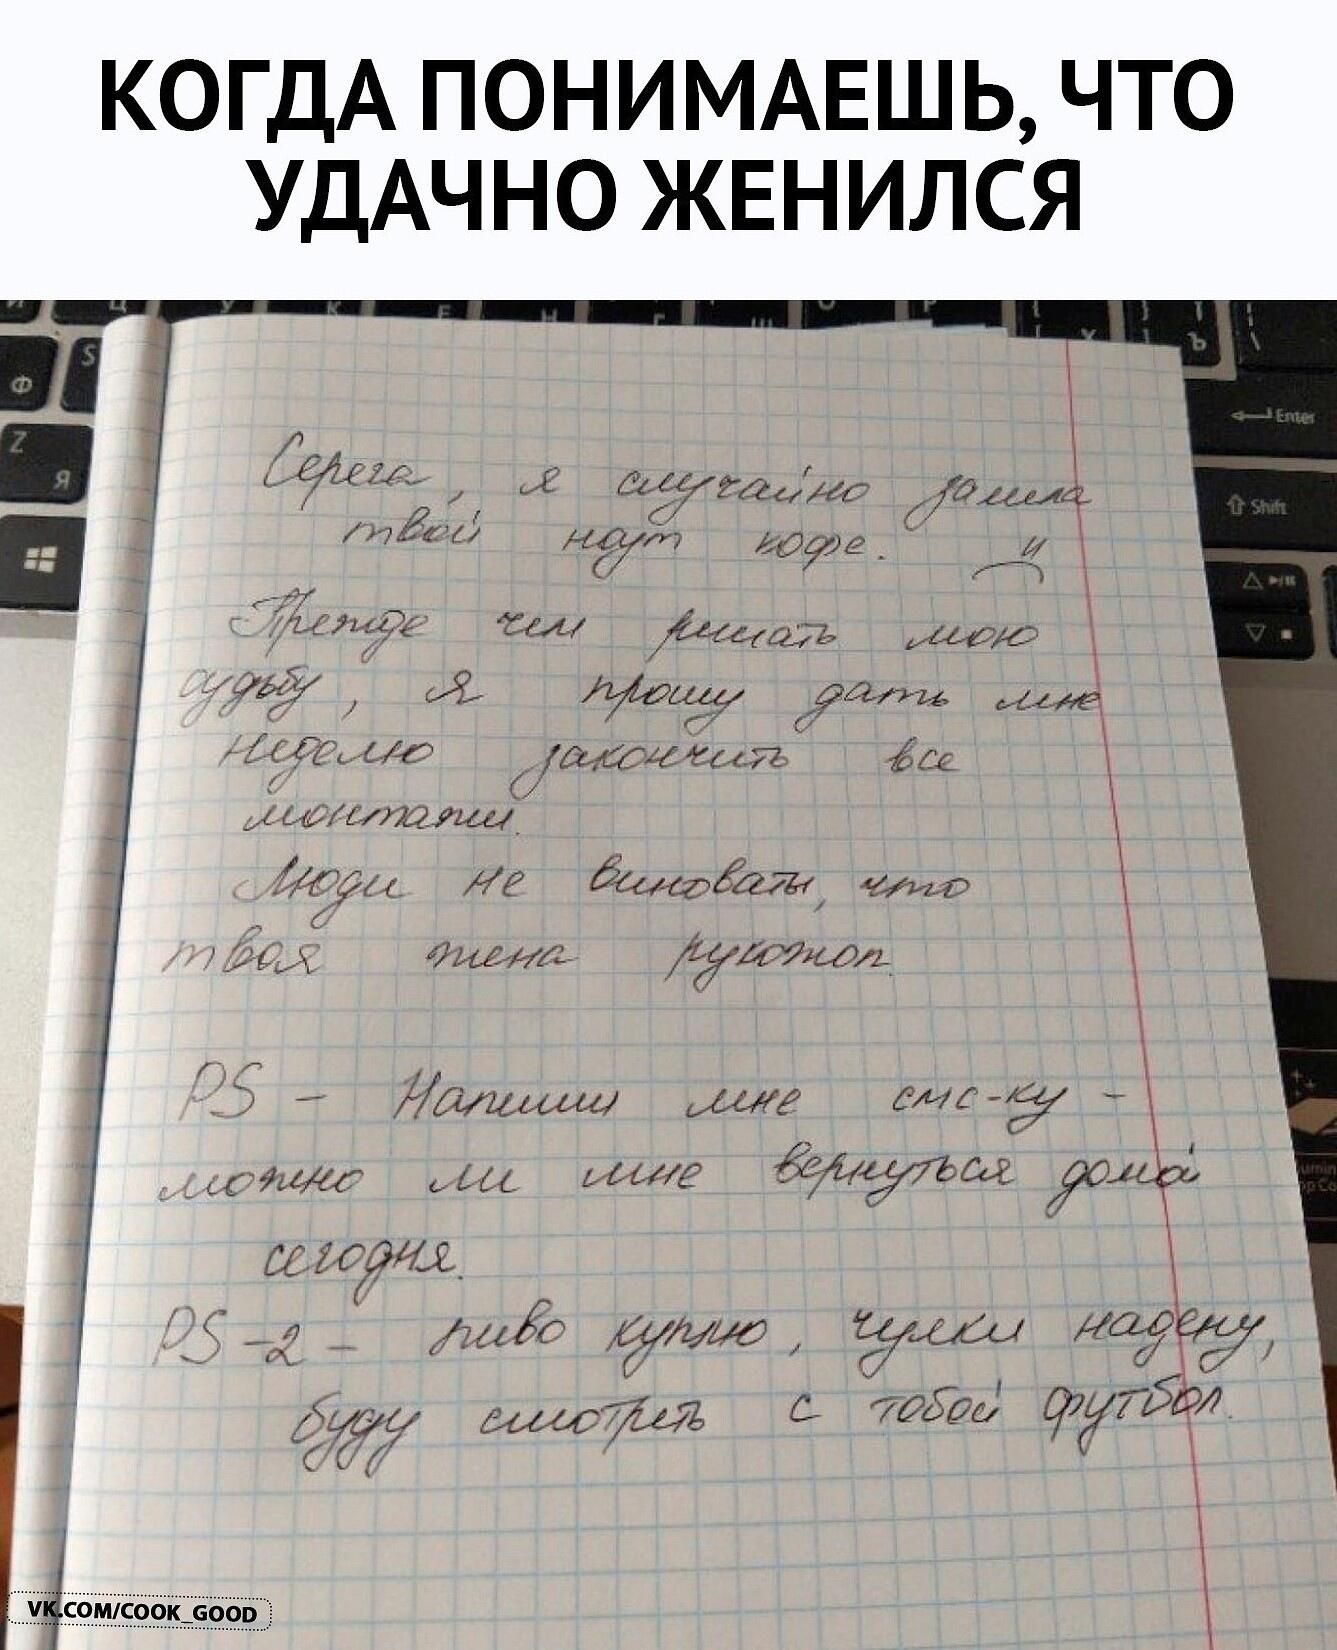 КОГДА ПОНИМАЕШЬ, ЧТО
УДАЧНО ЖЕНИЛСЯ
Серега, я случайно залила
твой ноут кофе.
Прежде чем решать мою
судьбу, я прошу дать мне
неделю закончить все
монтажи.
Люди не виноваты, что
твоя жена рукожоп.
PS - Напиши мне смс-ку -
можно ли мне вернуться домой
сегодня.
PS-2 - пиво куплю, чулки надену,
буду смотреть с тобой футбол.
Ф
S
Z
Я
Enter
Shift
VK.COM/COOK_GOOD